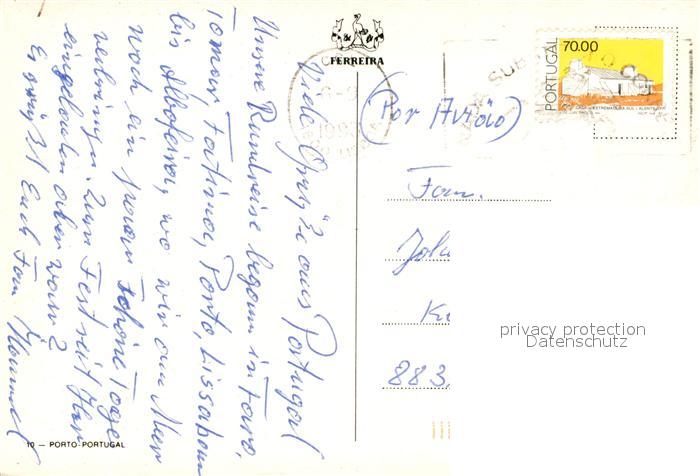 FERREIRA
Viele Grüße aus Portugal
Unsere Rundreise begann in Faro,
Tomar, Fatima, Porto, Lissabon
bis Albofeira, wo wir am Meer
noch ein paar schöne Tage
verbringen. Zum Fest seit Ihr
eingeladen aber wann?
Es grüßt Euch Fam.
10 — PORTO-PORTUGAL
70.00
PORTUGAL
(Por Avião)
Fam.
883
privacy protection
Datenschutz